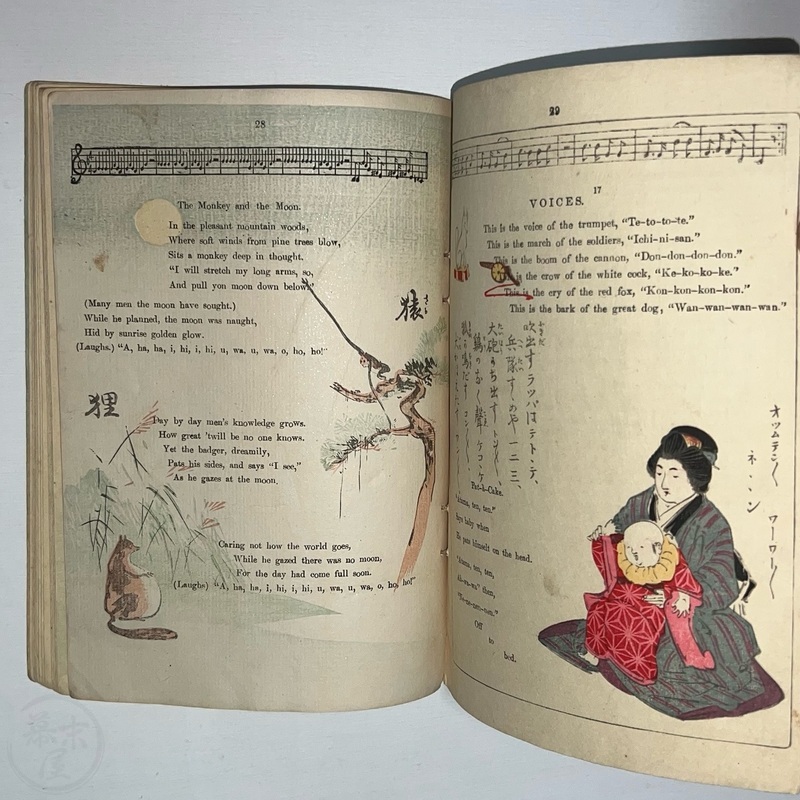 28
The Monkey and the Moon.
In the pleasant mountain woods,
Where soft winds from pine trees blow,
Sits a monkey deep in thought.
"I will stretch my long arms, so,
And pull you moon down below."
(Many men the moon have sought.)
While he planned, the moon was naught,
Hid by sunrise golden glow.
(Laughs.) "A, ha, ha, i, hi, i, hi, u, wa, u, wa, o, ho, ho!"
猿
狸
Day by day men's knowledge grows.
How great 'twill be no one knows.
Yet the badger, dreamily,
Pats his sides, and says "I see,"
As he gazes at the moon.
Caring not how the world goes,
While he gazed there was no moon,
For the day had come full soon.
(Laughs) "A, ha, ha, i, hi, i, hi, u, wa, u, wa, o, ho, ho!"
29
17
VOICES.
This is the voice of the trumpet, "Te-to-to-te."
This is the march of the soldiers, "Ichi-ni-san."
This is the boom of the cannon, "Don-don-don-don."
This is the crow of the white cock, "Ke-ko-ko-ke."
This is the cry of the red fox, "Kon-kon-kon-kon."
This is the bark of the great dog, "Wan-wan-wan-wan."
吹出すラッパはテトテ、
兵隊すゝのや一二三、
大砲うち出す
Pat-a-Cake.
ten, ten."
Says baby when
He pats himself on the head.
ten, ten,
then,
Off
to
bed.
オツムテン〱
ネンン
ワーワー〱
幕末屋